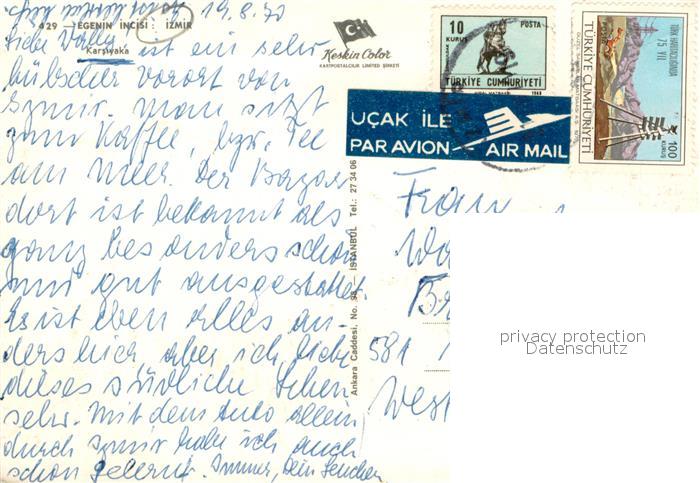 19.8.70
429 — EGENİN İNCİSİ : İZMİR
Karşıyaka
Liebe Wally, ist ein sehr
hübscher Vorort von
Izmir. Man sitzt
zum Kaffee, bzw. Tee
am Meer. Der Bazar
dort ist bekannt als
ganz besonders schön
und gut ausgestattet.
Es ist eben alles an-
ders hier, aber ich liebe
dieses südliche Leben
sehr. Mit dem Auto allein
durch Izmir habe ich auch
schon gelernt. Immer, Dein
Keskin Color
KARTPOSTALCILIK LIMITED ŞİRKETİ
Ankara Caddesi, No. 98 — İSTANBUL Tel.: 27 34 06
10
KURUŞ
POSTA
TÜRKİYE CUMHURİYETİ
1968
TÜRK HAVACILIĞININ
75 YILI
TÜRKİYE CUMHURİYETİ
100
KURUŞ
UÇAK İLE
PAR AVION — AIR MAIL
Frau
581
West
privacy protection
Datenschutz